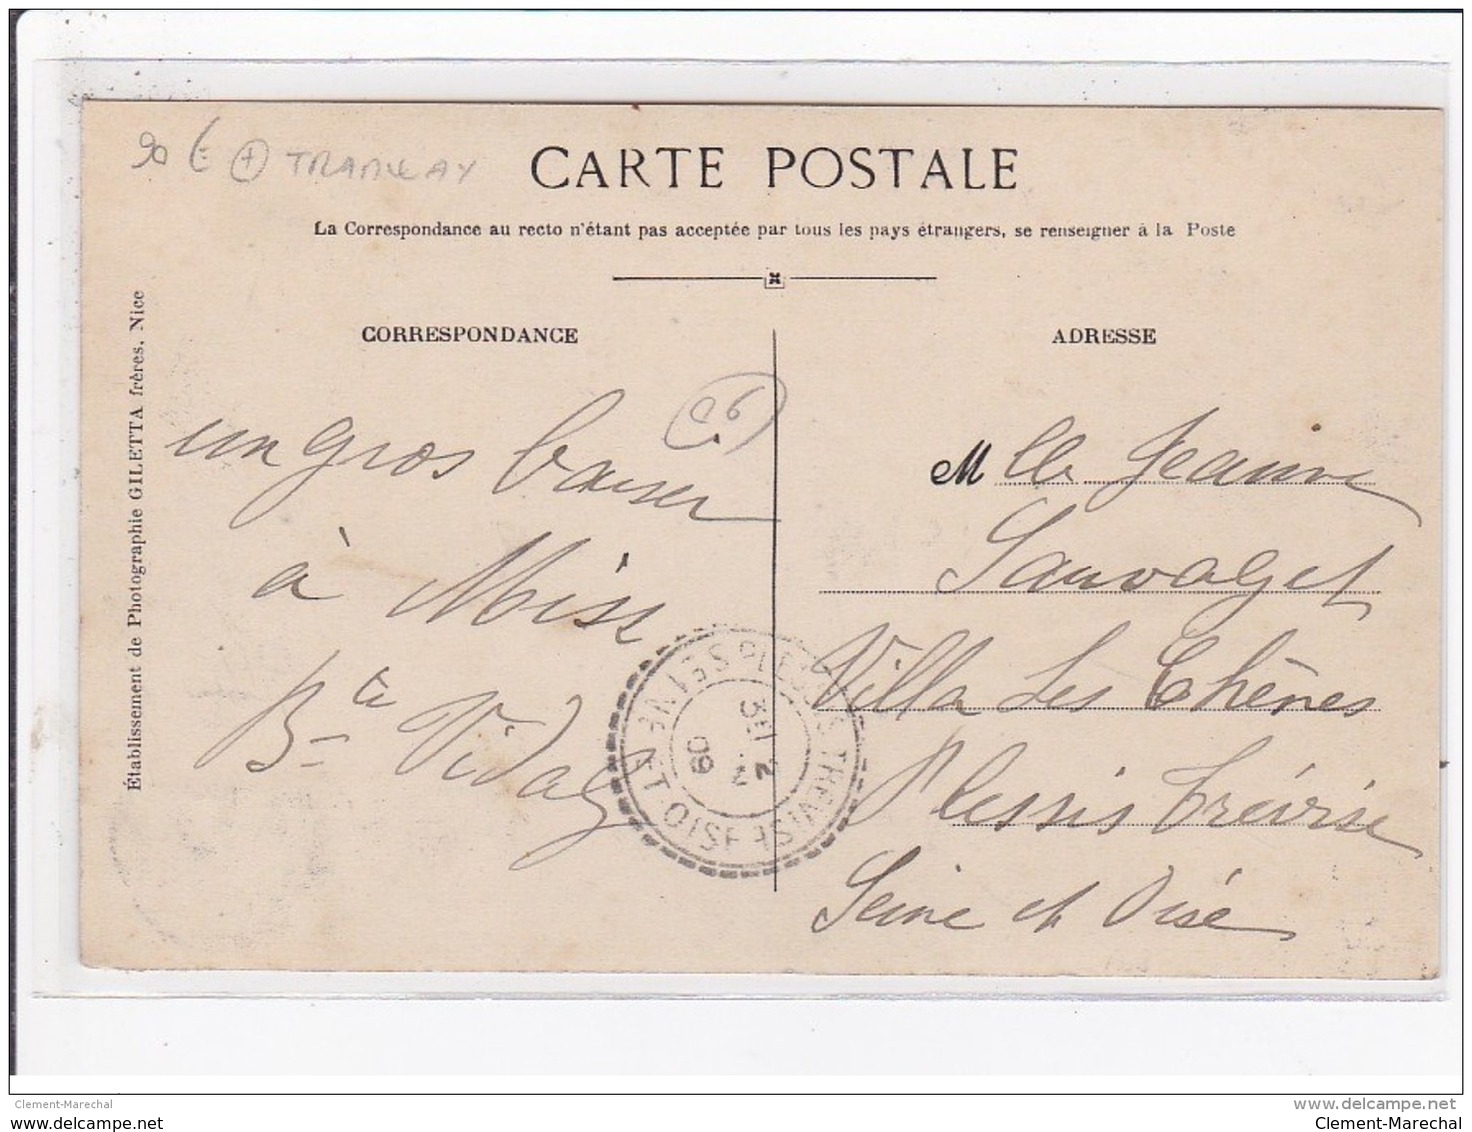 90 € + TRAMWAY
CARTE POSTALE
La Correspondance au recto n'étant pas acceptée par tous les pays étrangers, se renseigner à la Poste
Établissement de Photographie GILETTA frères, Nice
CORRESPONDANCE
06
un gros baiser
à Miss
Bte Vidal
ADRESSE
Mlle Jeanne
Sauvaget
Villa Les Chênes
Plessis Trévise
Seine et Oise
PLESSIS TREVISE
SEINE ET OISE
2
09
Clement-Marechal
www.delcampe.net
www.delcampe.net
Clement-Marechal